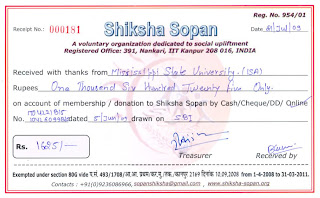 Reg. No. 954/01
Receipt No.: 000181 Shiksha Sopan Date
A voluntary organization dedicated to social upliftment
Registered Office: 391, Nankari, IIT Kanpur 208 016, INDIA
Received with thanks from Mississippi State University (USA)
Rupees One Thousand Six Hundred Twenty Five Only.
on account of membership / donation to Shiksha Sopan by Cash/Cheque/DD/ Online
dated drawn on SBI
Rs. 1625/-
Treasurer Received by
Exempted under section 80G vide प.सं. 12.09.2008 from 1-4-2008 to 31-03-2011.
Contacts : +91(0)9236086966, sopanshiksha@gmail.com , www.shiksha-sopan.org